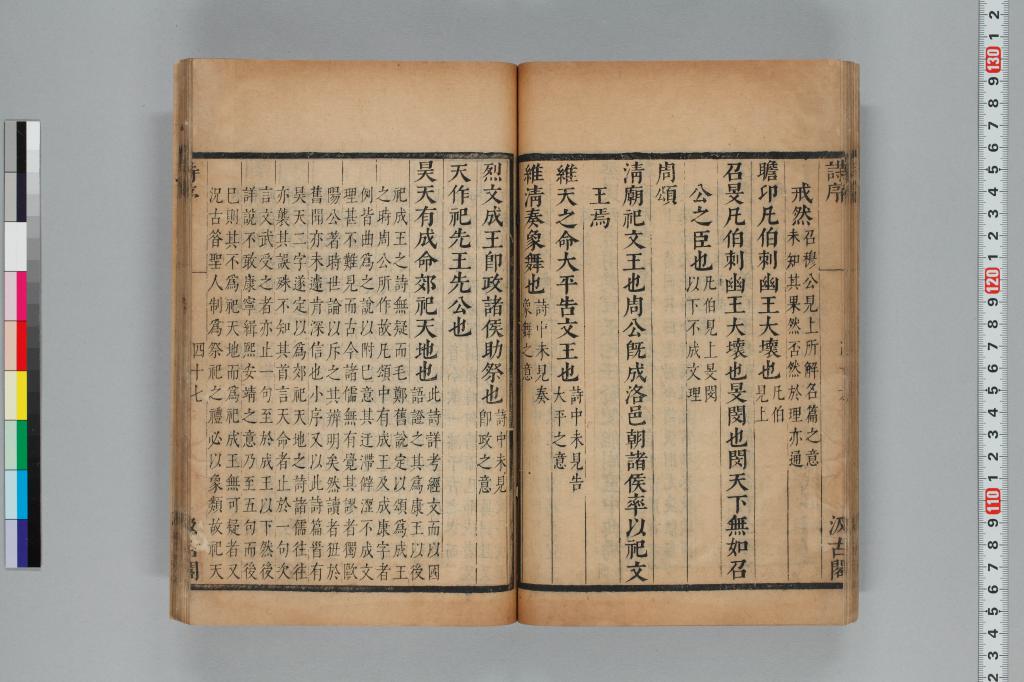 詩序
汲古閣
戒然召穆公見上所解名篇之意
未知其果然否然於理亦通
瞻卬凡伯刺幽王大壞也凡伯
見上
召旻凡伯刺幽王大壞也旻閔也閔天下無如召
公之臣也凡伯見上旻閔
以下不成文理
周頌
清廟祀文王也周公旣成洛邑朝諸侯率以祀文
王焉
維天之命大平告文王也詩中未見告
大平之意
維清奏象舞也詩中未見奏
象舞之意
烈文成王卽政諸侯助祭也詩中未見
卽政之意
天作祀先王先公也
昊天有成命郊祀天地也此詩詳考經文而以國
語證之其爲康王以後
祀成王之詩無疑而毛鄭舊說定以頌爲成王
之時周公所作故凡頌中有成王及成康字者
例皆曲爲之說以附已意其迂滯僻澀不成文
理甚不難見而古今諸儒無有覺其謬者獨歐
陽公著時世論以斥之其辨明矣然讀者狃於
舊聞亦未遽肯深信也小序又以此詩篇首有
昊天二字遂定以爲郊祀天地之詩諸儒往往
亦襲其誤殊不知其首言天命者止於一句次
言文武受之者亦止一句至於成王以下然後
詳說不敢康寧緝熙安靖之意乃至五句而後
已則其不爲祀天地而爲祀成王無可疑者又
況古昔聖人制爲祭祀之禮必以象類故祀天
四十七